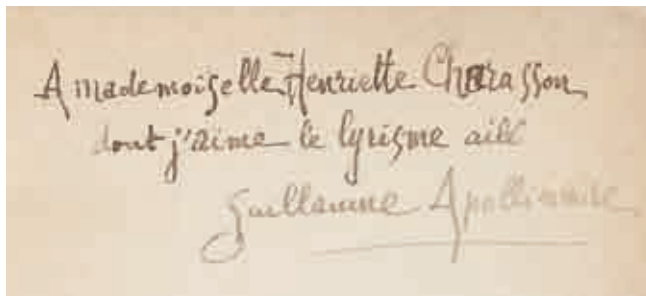 A mademoiselle Henriette Charasson
dont j'aime le lyrisme ailé
Guillaume Apollinaire